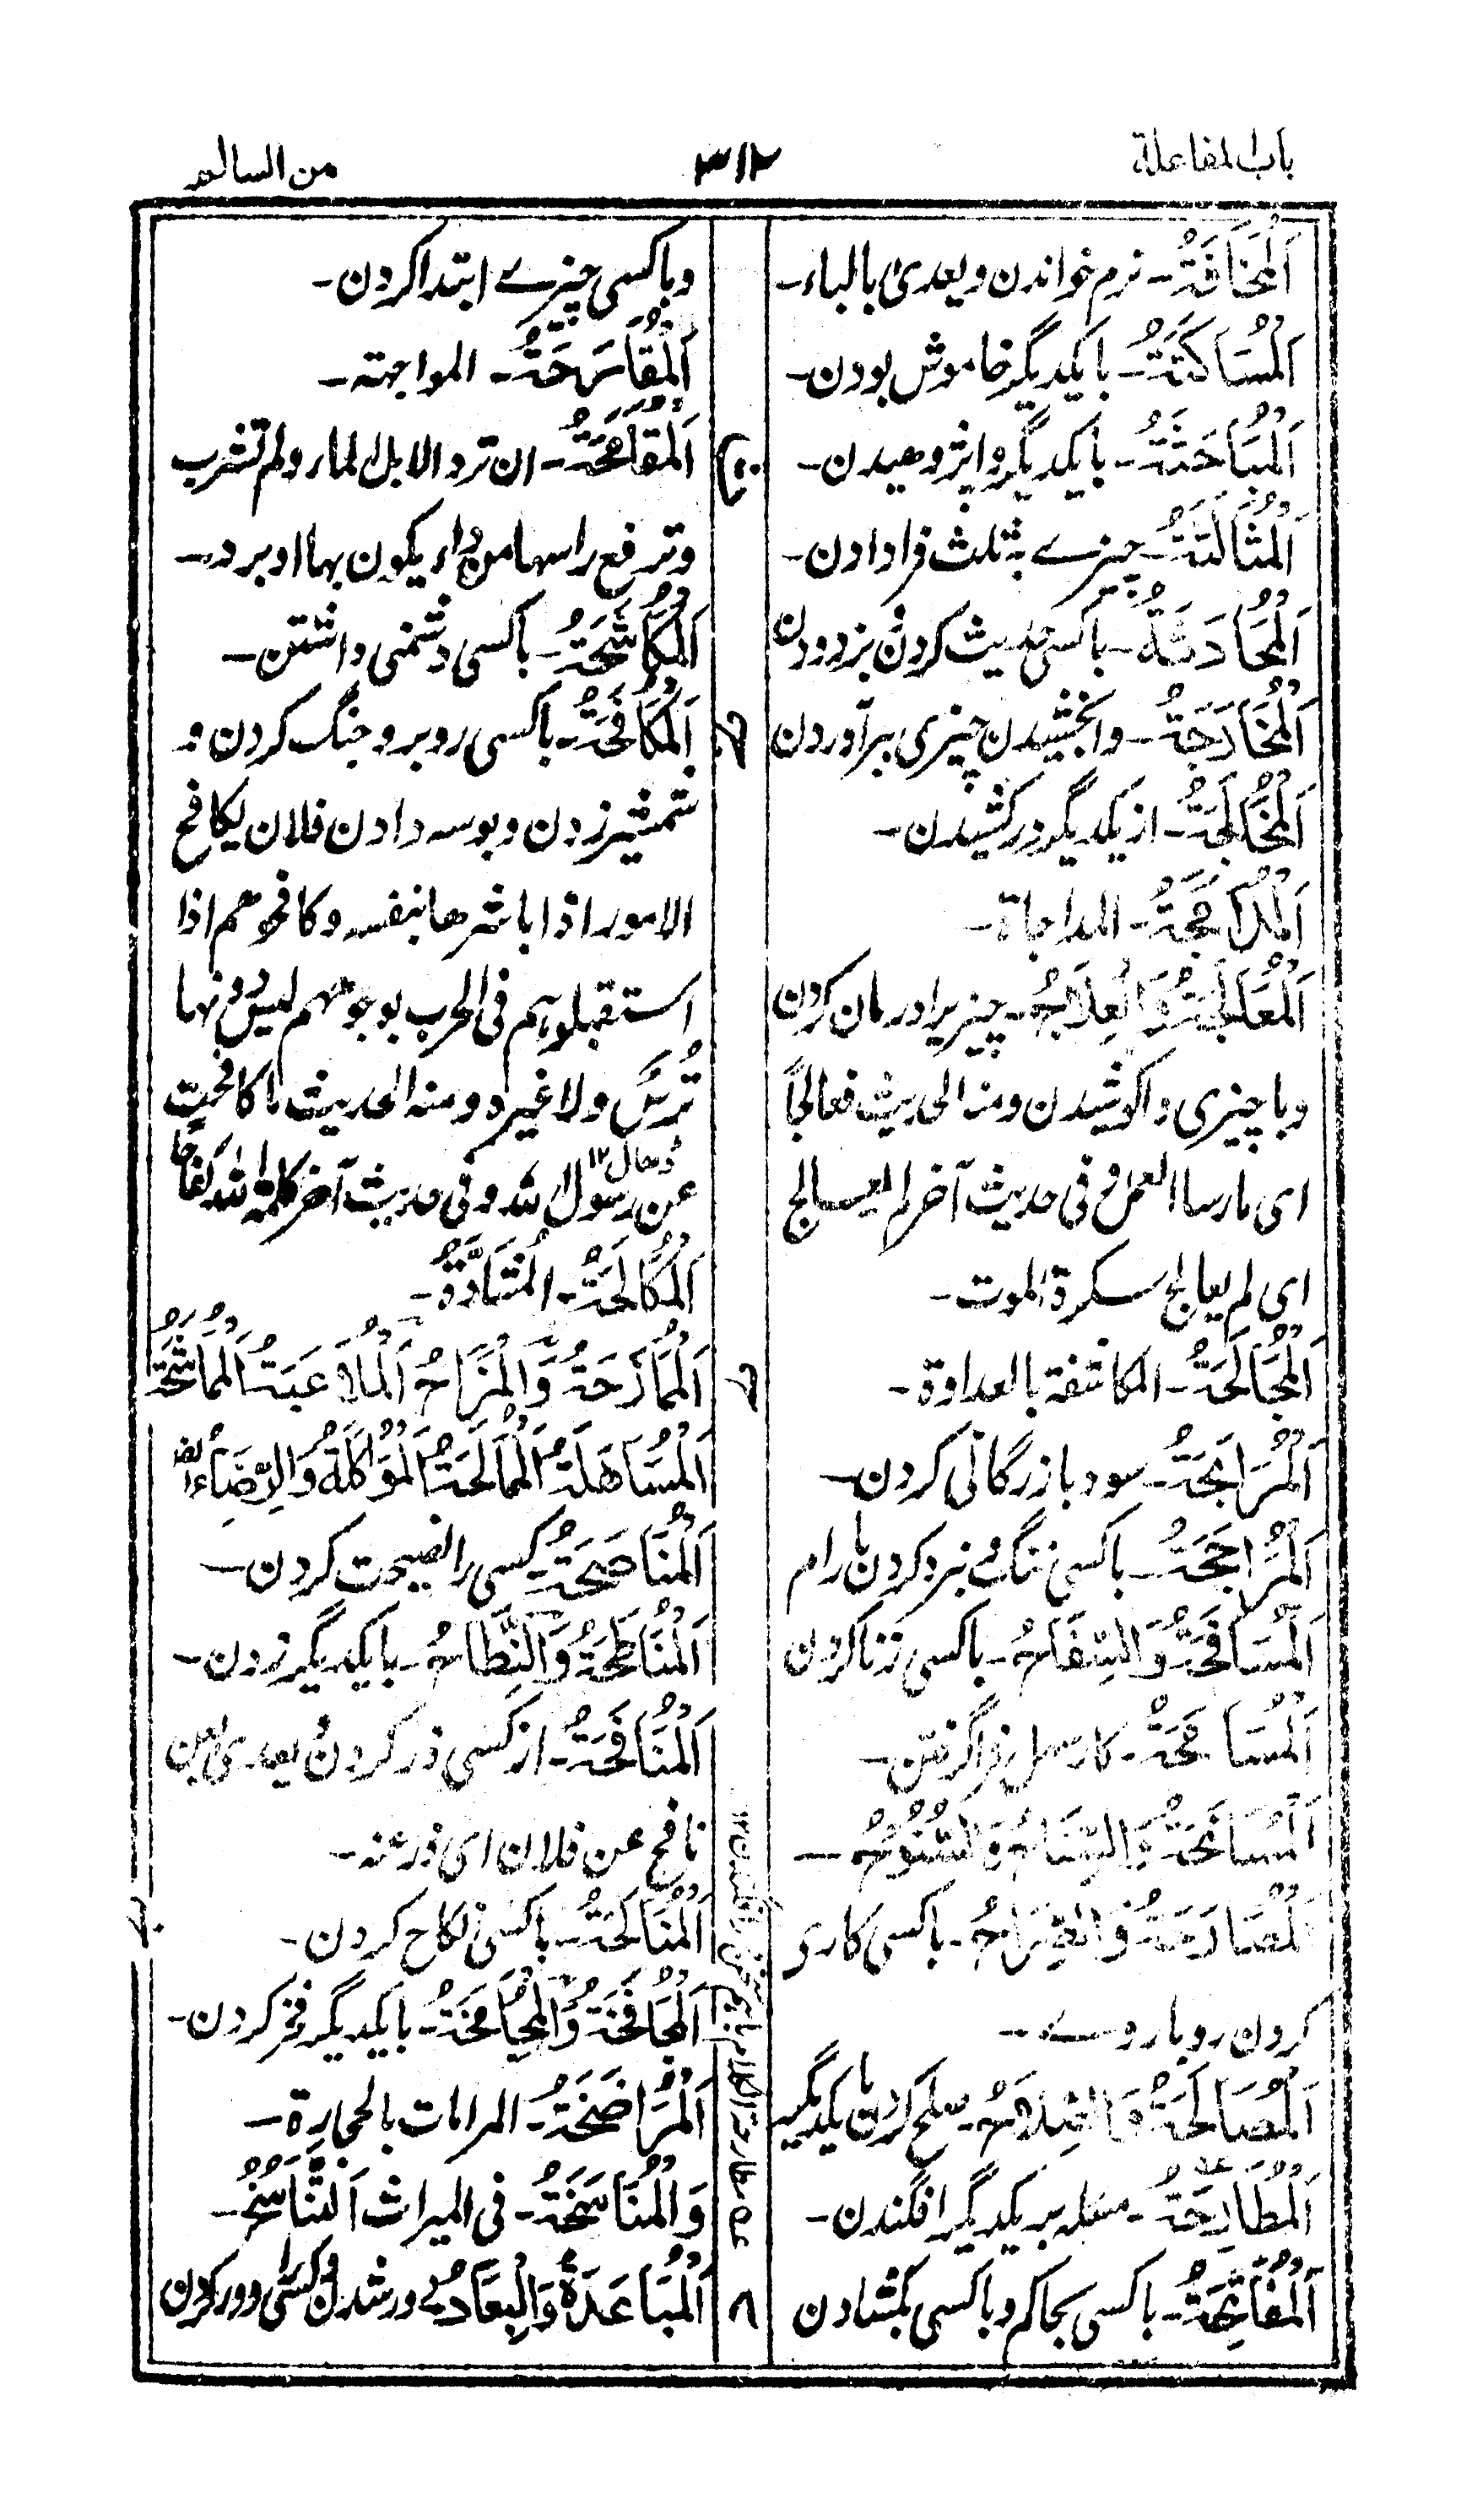 باب المفاعلة
۳۱۲
من السالم
اَلْمُخَافَتَةُ۔ نرم خواندن ویعدی بالباء۔
اَلْمُسَاكَتَةُ۔ بایکدیگر خاموش بودن۔
اَلْمُبَاحَثَةُ۔ بایکدیگر واپژوهیدن۔
اَلْمُثَالَثَةُ۔ چیزے بثلث فرا دادن۔
اَلْمُحَادَثَةُ۔ باکسی حدیث کردن و بزدودن
اَلْمُخَارَجَةُ۔ وابخشیدن چیزی برآوردن
اَلْمُخَالَجَةُ۔ از یکدیگر درکشیدن۔
اَلْمُدَامَجَةُ۔ المداجاة۔
اَلْمُعَالَجَةُ وَالْعِلَاجُ۔ چیزیرا درمان کردن
وباچیزی واکوشیدن ومنه الحدیث فعالجًا
ای مارسا العمل و فی حدیث آخر لم یعالج
ای لم یعالج سکرة الموت۔
اَلْمُجَالَحَةُ۔ المکاشفة بالعداوة۔
اَلْمُرَابَحَةُ۔ سود بازرگانی کردن۔
اَلْمُرَاجَحَةُ۔ باکسی نبرد کردن بارام
اَلْمُسَافَحَةُ وَالسِّفَاحُ۔ باکسی زنا کردن
اَلْمُسَامَحَةُ۔ کار سهل فراگرفتن۔
اَلْمُسَانَحَةُ وَالسِّنَاحُ وَالسُّنُوحُ۔
اَلْمُصَارَحَةُ وَالصِّرَاحُ۔ باکسی کاری
کردن روباروے۔
اَلْمُصَالَحَةُ وَالصِّلَاحُ۔ صلح کردن بایکدیگر
اَلْمُطَارَحَةُ۔ مسئله بریکدیگر افگندن۔
اَلْمُفَاتَحَةُ۔ باکسی بحاکم وباکسی بکشادن
وباکسی چیزے ابتدا کردن۔
اَلْمُقَارَحَةُ۔ المواجهة۔
اَلْمُقَامَحَةُ۔ ان ترد الابل الماء ولم تشرب
وترفع راسها من داء یکون بها او برد۔
اَلْمُکَاشَحَةُ۔ باکسی دشمنی داشتن۔
اَلْمُکَافَحَةُ۔ باکسی روبرو جنگ کردن و
شمشیر زدن وبوسه دادن فلان یکافح
الامور اذا باشرها بنفسه وکافحوهم اذا
استقبلوهم فی الحرب بوجوههم لیس دونها
تُرسٌ ولا غیره ومنه الحدیث ما کافحت
عن رسول الله وفی حدیث آخر کلمه الله کفاحا
اَلْمُکَالَحَةُ۔ اَلْمُشَادَّةُ۔
اَلْمُمَازَحَةُ وَالْمِزَاحُ اَلْمُلَاعَبَةُ
اَلْمُسَاهَلَةُ اَلْمُمَالَحَةُ اَلْمُؤَاکَلَةُ وَالرِّضَاعُ
اَلْمُنَاصَحَةُ۔ کسی را نصیحت کردن۔
اَلْمُنَاطَحَةُ وَالنِّطَاحُ۔ بایکدیگر زدن۔
اَلْمُنَافَحَةُ۔ از کسی ذر کردن و یعدی بعن
نافح عن فلان ای ذر عنه۔
اَلْمُنَاکَحَةُ۔ باکسی نکاح کردن۔
اَلْجَافَخَةُ وَالْمُجَامَخَةُ۔ بایکدیگر فخر کردن۔
اَلْمُرَاضَخَةُ۔ المرامات بالحجارة۔
وَالْمُنَاسَخَةُ۔ فی المیراث اَلتَّنَاسُخُ۔
اَلْمُبَاعَدَةُ وَالْبِعَادُ۔ دور شدن و کسی را دور کردن